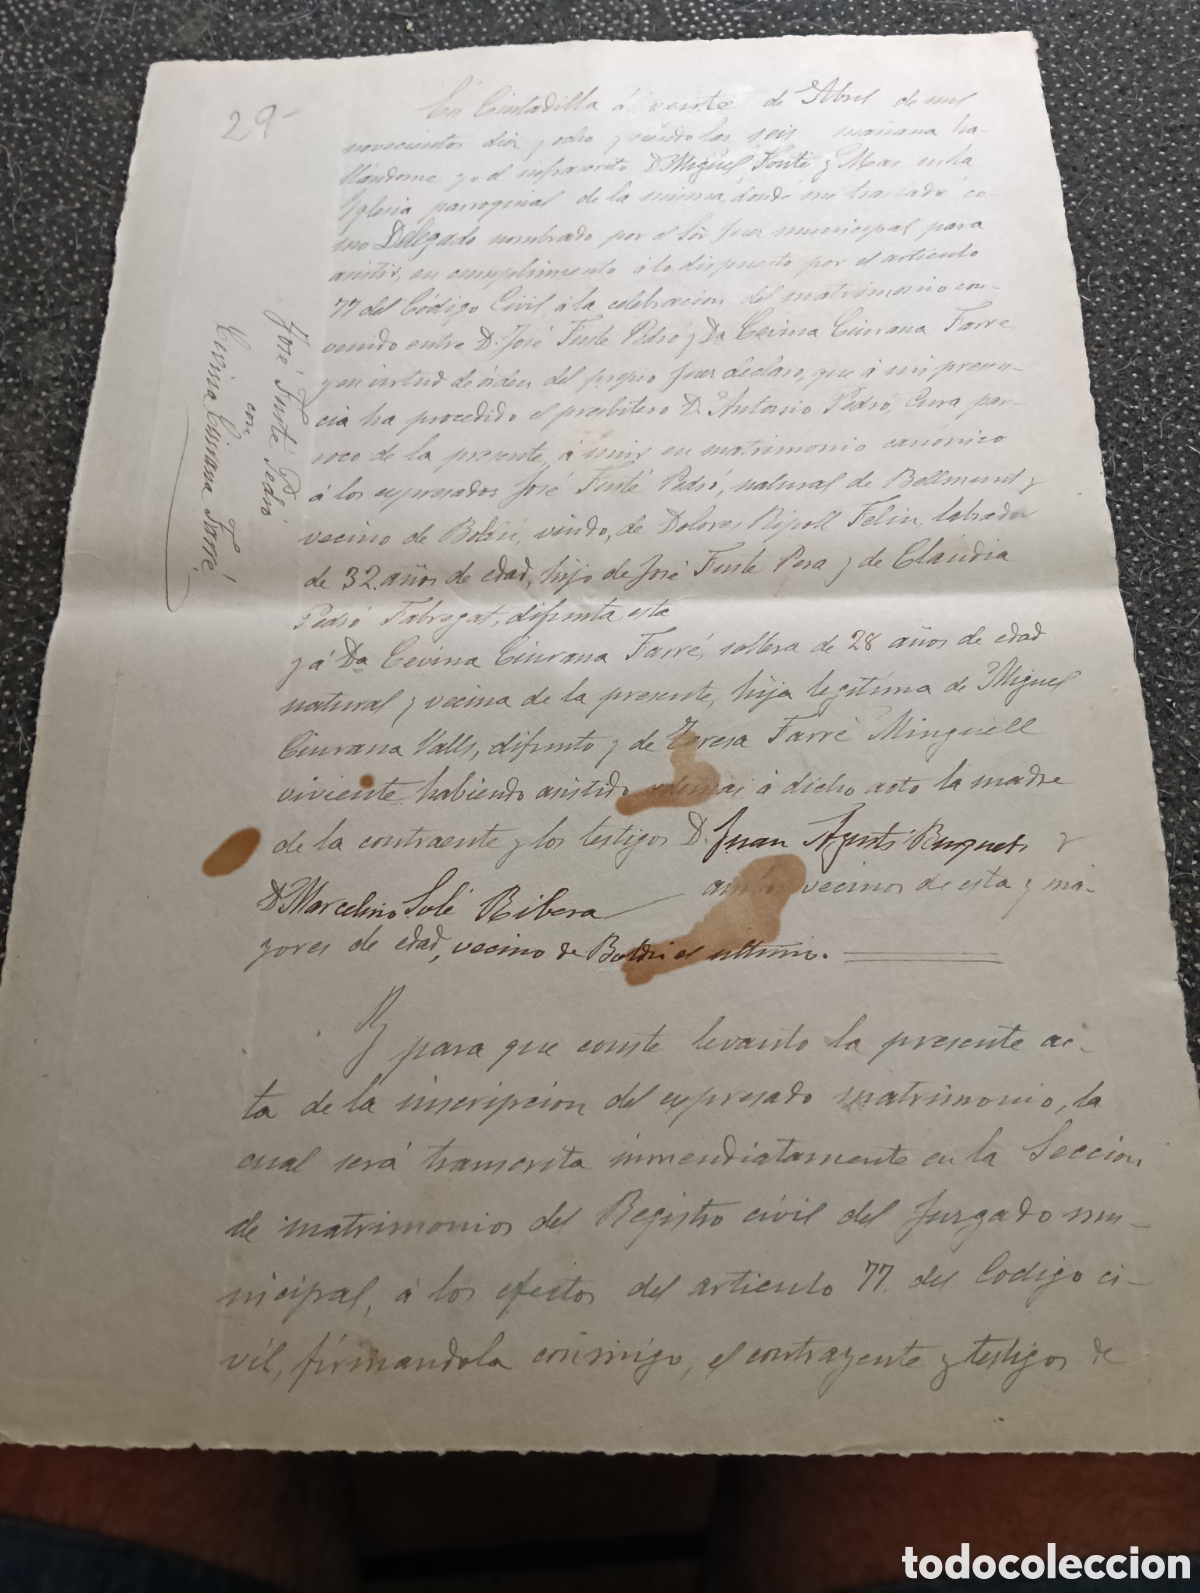 29-
José Fusté Pedró
con
Cevina Ciurana Farré.
En Ciutadilla á veinte de Abril de mil
novecientos diez y ocho y siendo las seis mañana ha-
llándome yo el infrascrito D. Miguel Fonté y Mas en la
Iglesia parroquial de la misma, donde me trasladé co-
mo Delegado nombrado por el Sor Juez municipal para
asistir, en cumplimiento á lo dispuesto por el artículo
77 del Código Civil á la celebracion del matrimonio con-
venido entre D. José Fusté Pedró y Da Cevina Ciurana Farré,
y en virtud de órden del propio Juez declaro, que á mi presen-
cia ha procedido el presbitero D. Antonio Pedró, Cura par-
roco de la presente, á unir en matrimonio canónico
á los expresados José Fusté Pedró, natural de Bellmunt y
vecino de Boldú, viudo, de Dolores Ripoll Feliu, labrador
de 32 años de edad, hijo de José Fusté Pera y de Claudia
Pedró Fabregat, difunta esta
y á Da Cevina Ciurana Farré, soltera de 28 años de edad
natural y vecina de la presente, hija legitima de Miguel
Ciurana Valls, difunto y de Teresa Farré Minguell
viviente habiendo asistido además á dicho acto la madre
de la contraente y los testigos D. Juan Agustí Busquets y
D. Marcelino Solé Ribera ambos vecinos de esta y ma-
yores de edad, vecino de Boldú el ultimo.
Y para que conste levanto la presente ac-
ta de la inscripcion del expresado matrimonio, la
cual será transcrita inmendiatamente en la Seccion
de matrimonios del Registro civil del Juzgado mu-
nicipal, á los efectos del articulo 77. del Codigo ci-
vil, firmandola conmigo, el contrayente y testigos de
todocoleccion